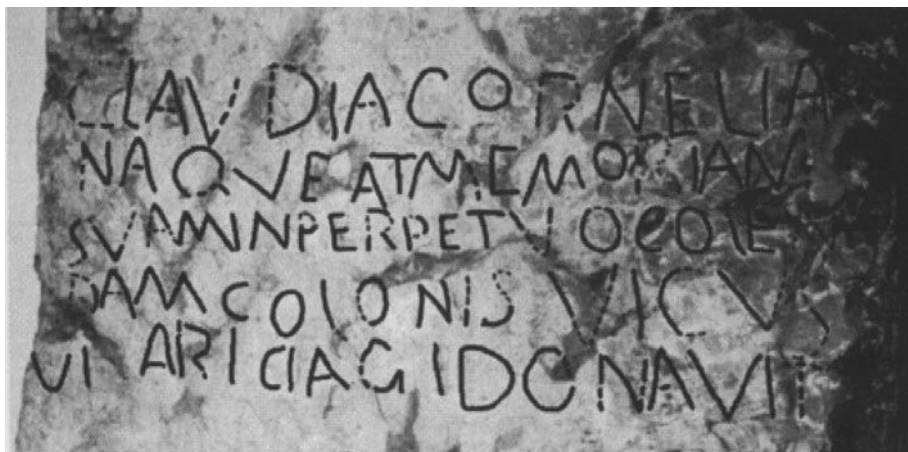 CLAVDIA CORNELIA
NA QVE AT MEMORIAM
SVAM IN PERPETVO COLE
DAM COLONIS VICVS
VI ARICIAGI DONAVIT